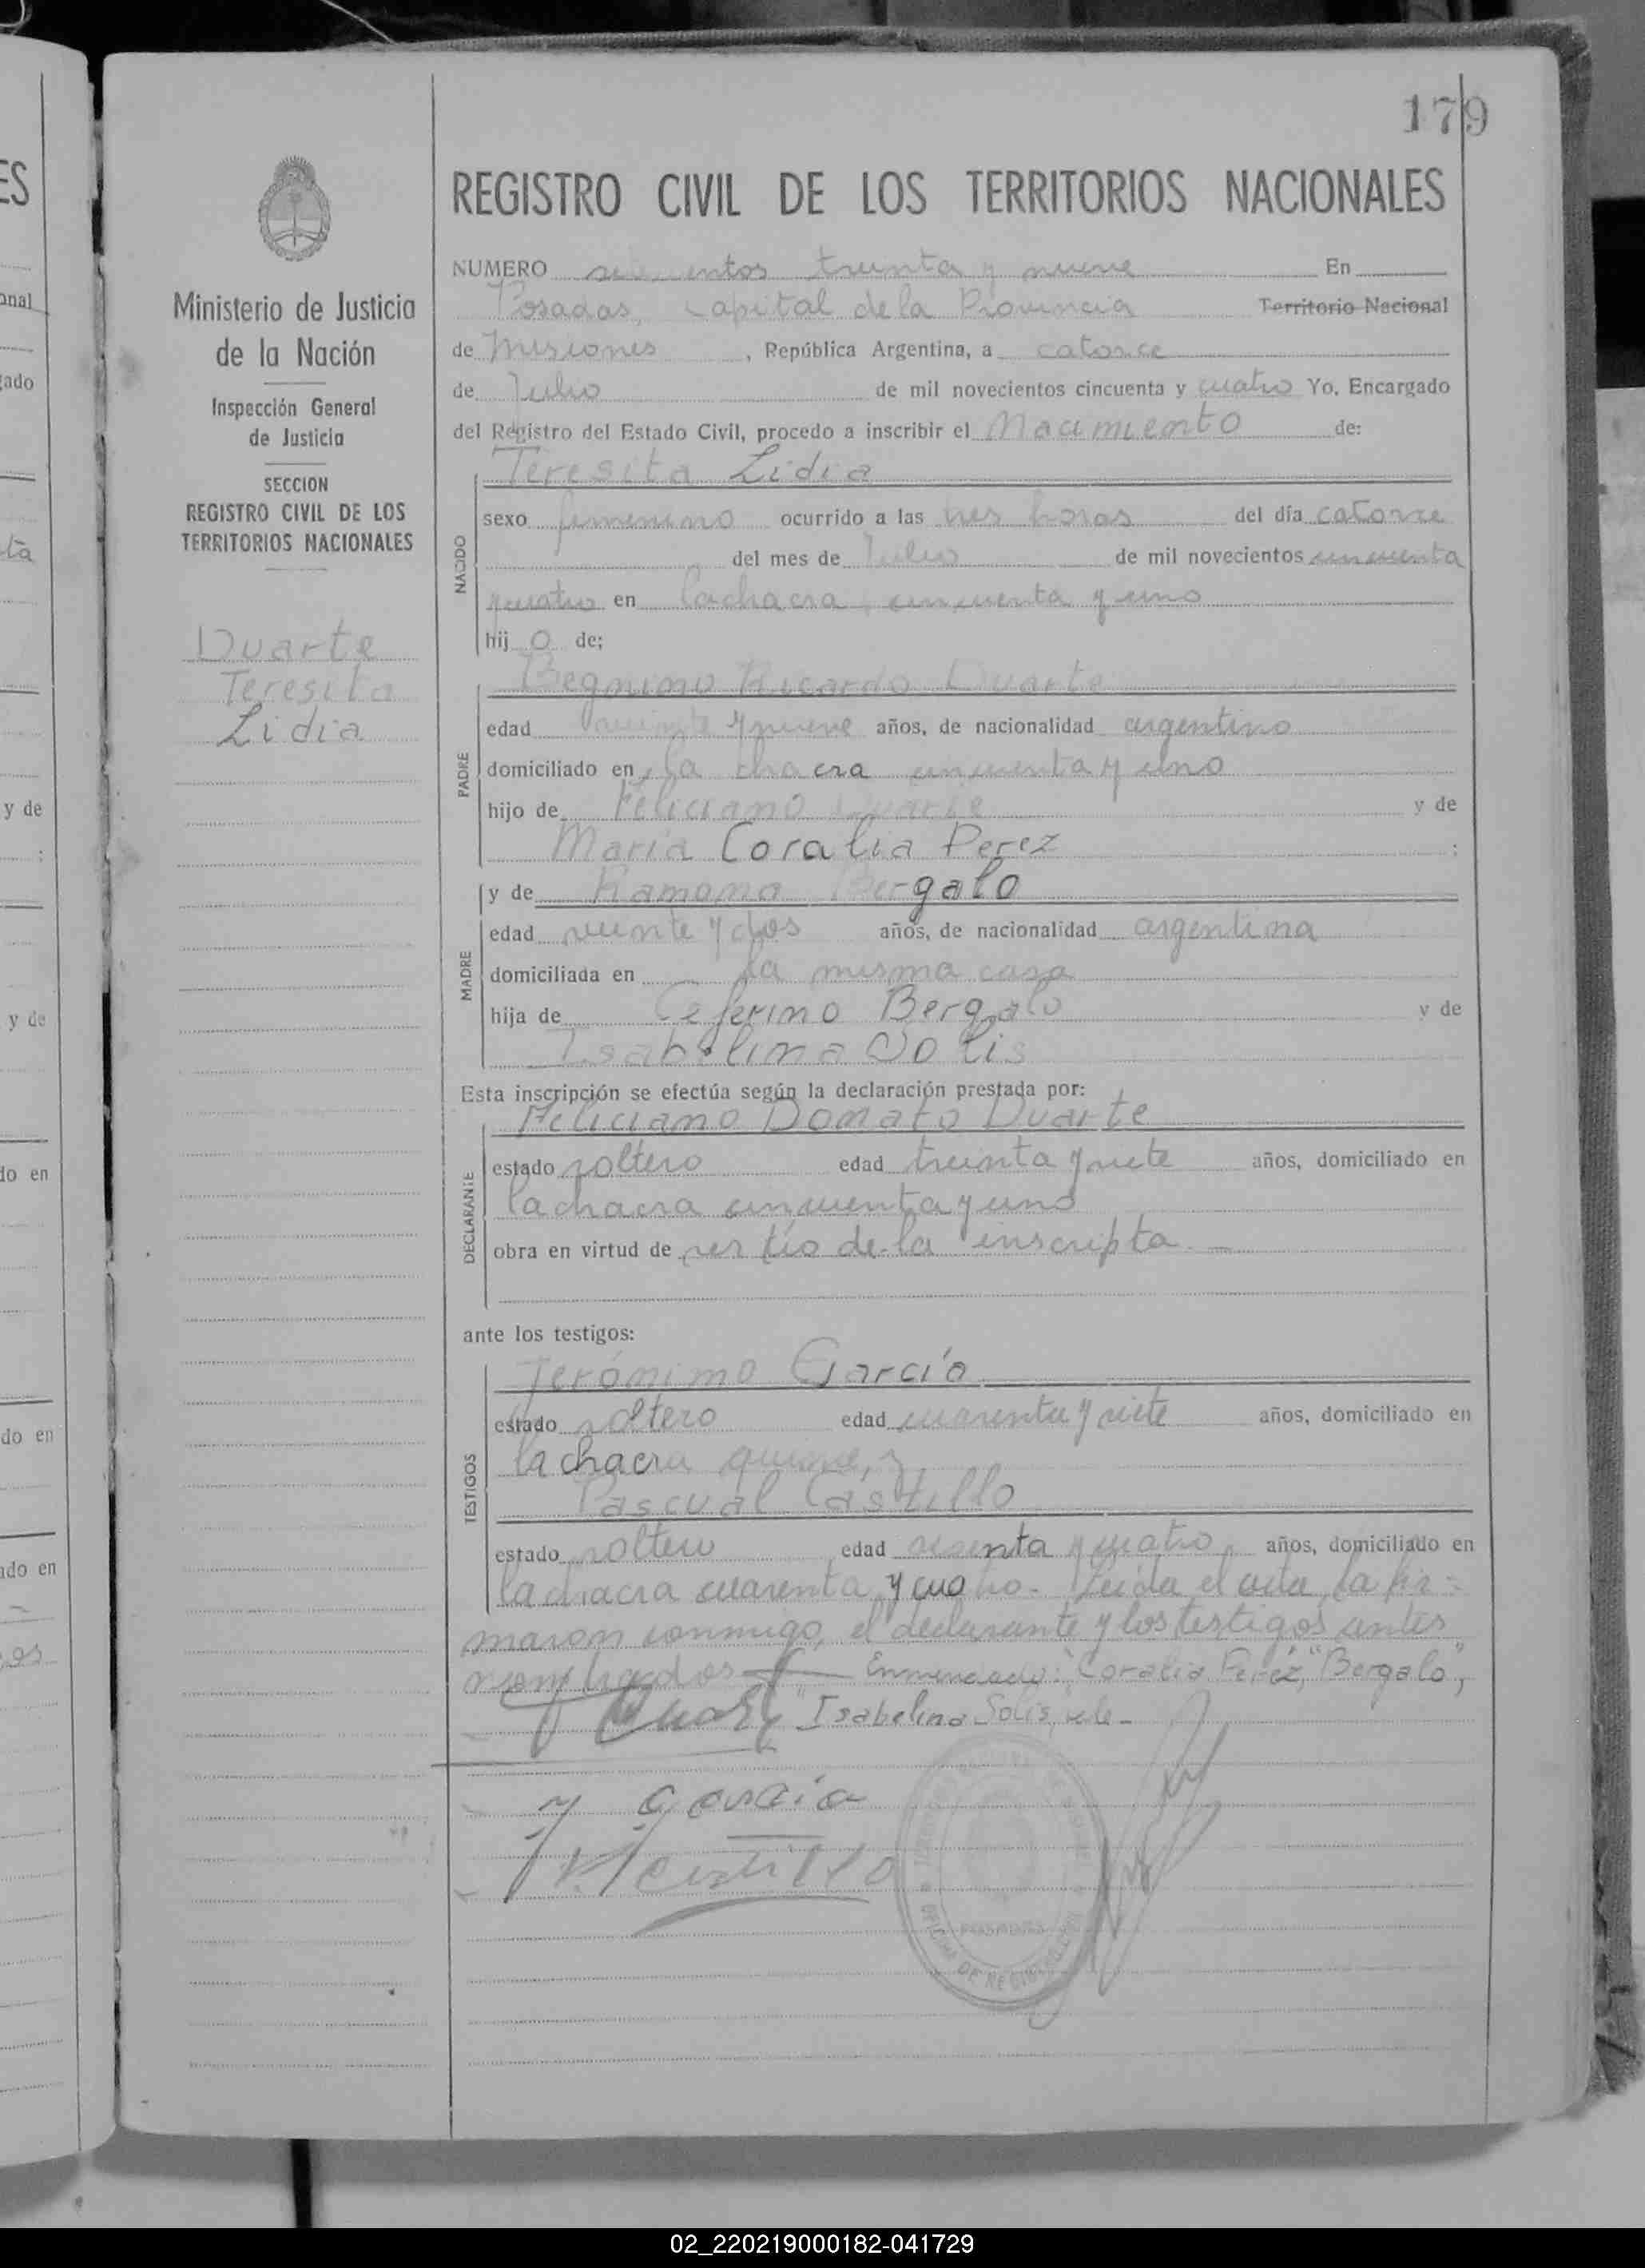 179
REGISTRO CIVIL DE LOS TERRITORIOS NACIONALES
Ministerio de Justicia
de la Nación
Inspección General
de Justicia
SECCION
REGISTRO CIVIL DE LOS
TERRITORIOS NACIONALES
Duarte
Teresita
Lidia
NUMERO seiscientos treinta y nueve En
Posadas, Capital de la Provincia Territorio Nacional
de Misiones, República Argentina, a catorce
de Julio de mil novecientos cincuenta y cuatro Yo, Encargado
del Registro del Estado Civil, procedo a inscribir el Nacimiento de:
NACIDO
Teresita Lidia
sexo femenino ocurrido a las tres horas del día catorce
del mes de Julio de mil novecientos cincuenta
y cuatro en la chacra cincuenta y uno
hij o de;
PADRE
Ricardo Duarte
edad y nueve años, de nacionalidad argentino
domiciliado en la chacra cincuenta y uno
hijo de Feliciano Duarte y de
María Coralia Perez ;
y de Ramona Bergalo
MADRE
edad veinte y dos años, de nacionalidad argentina
domiciliada en la misma casa
hija de Ceferino Bergalo y de
Isabelina Solis
Esta inscripción se efectúa según la declaración prestada por:
DECLARANTE
Feliciano Donato Duarte
estado soltero edad treinta y siete años, domiciliado en
la chacra cincuenta y uno
obra en virtud de ser tío de la inscripta. —
ante los testigos:
TESTIGOS
Jerónimo García
estado soltero edad cuarenta y siete años, domiciliado en
la chacra quince, y
Pascual Castillo
estado soltero edad sesenta y cuatro, años, domiciliado en
la chacra cuarenta y cuatro. Leida el acta, la fir=
maron conmigo, el declarante y los testigos antes
nombrados — Enmendado: "Coralia Perez", "Bergalo",
"Isabelina Solis, vale-
Duarte
J Garcia
Castillo
POSADAS
02_220219000182-041729